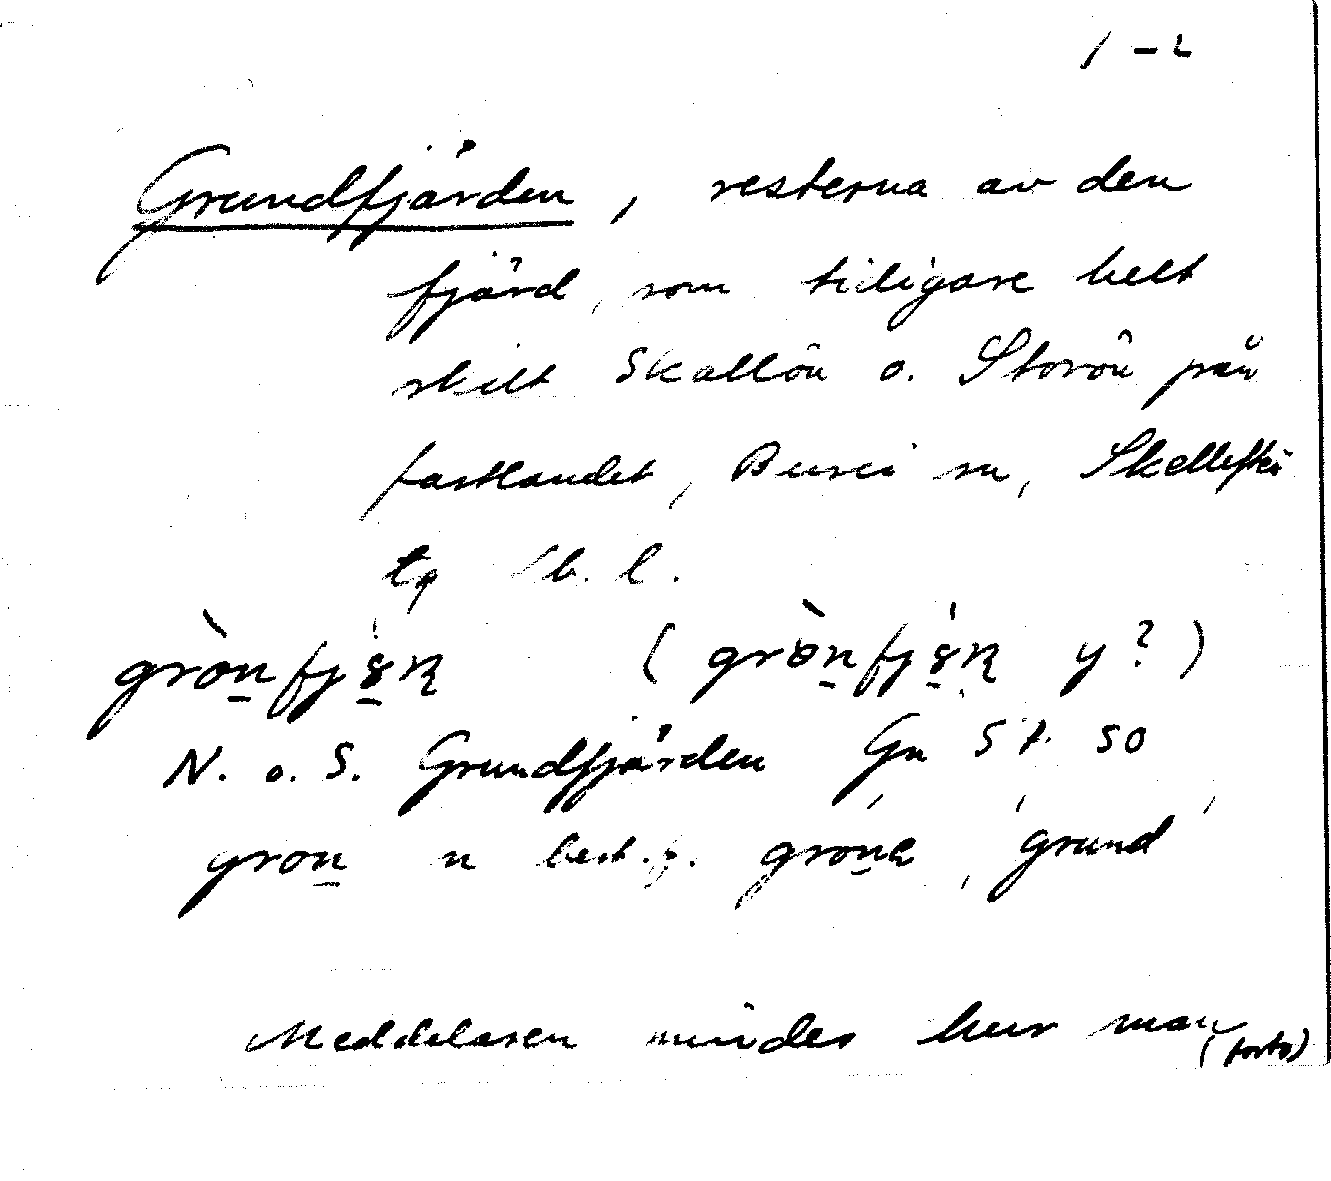 1-2
Grundfjärden, resterna av den
fjärd, som tidigare helt
skilt Skallön o. Storön från
fastlandet, Bureå sn, Skellefteå
tg Vb. l.
grònfjä̱ṇ (grònfjä̱ṇ y?)
N. o. S. Grundfjärden Gn St. so
gron n best. f. grone, 'grund'
Meddelaren mindes hur man
(forts)